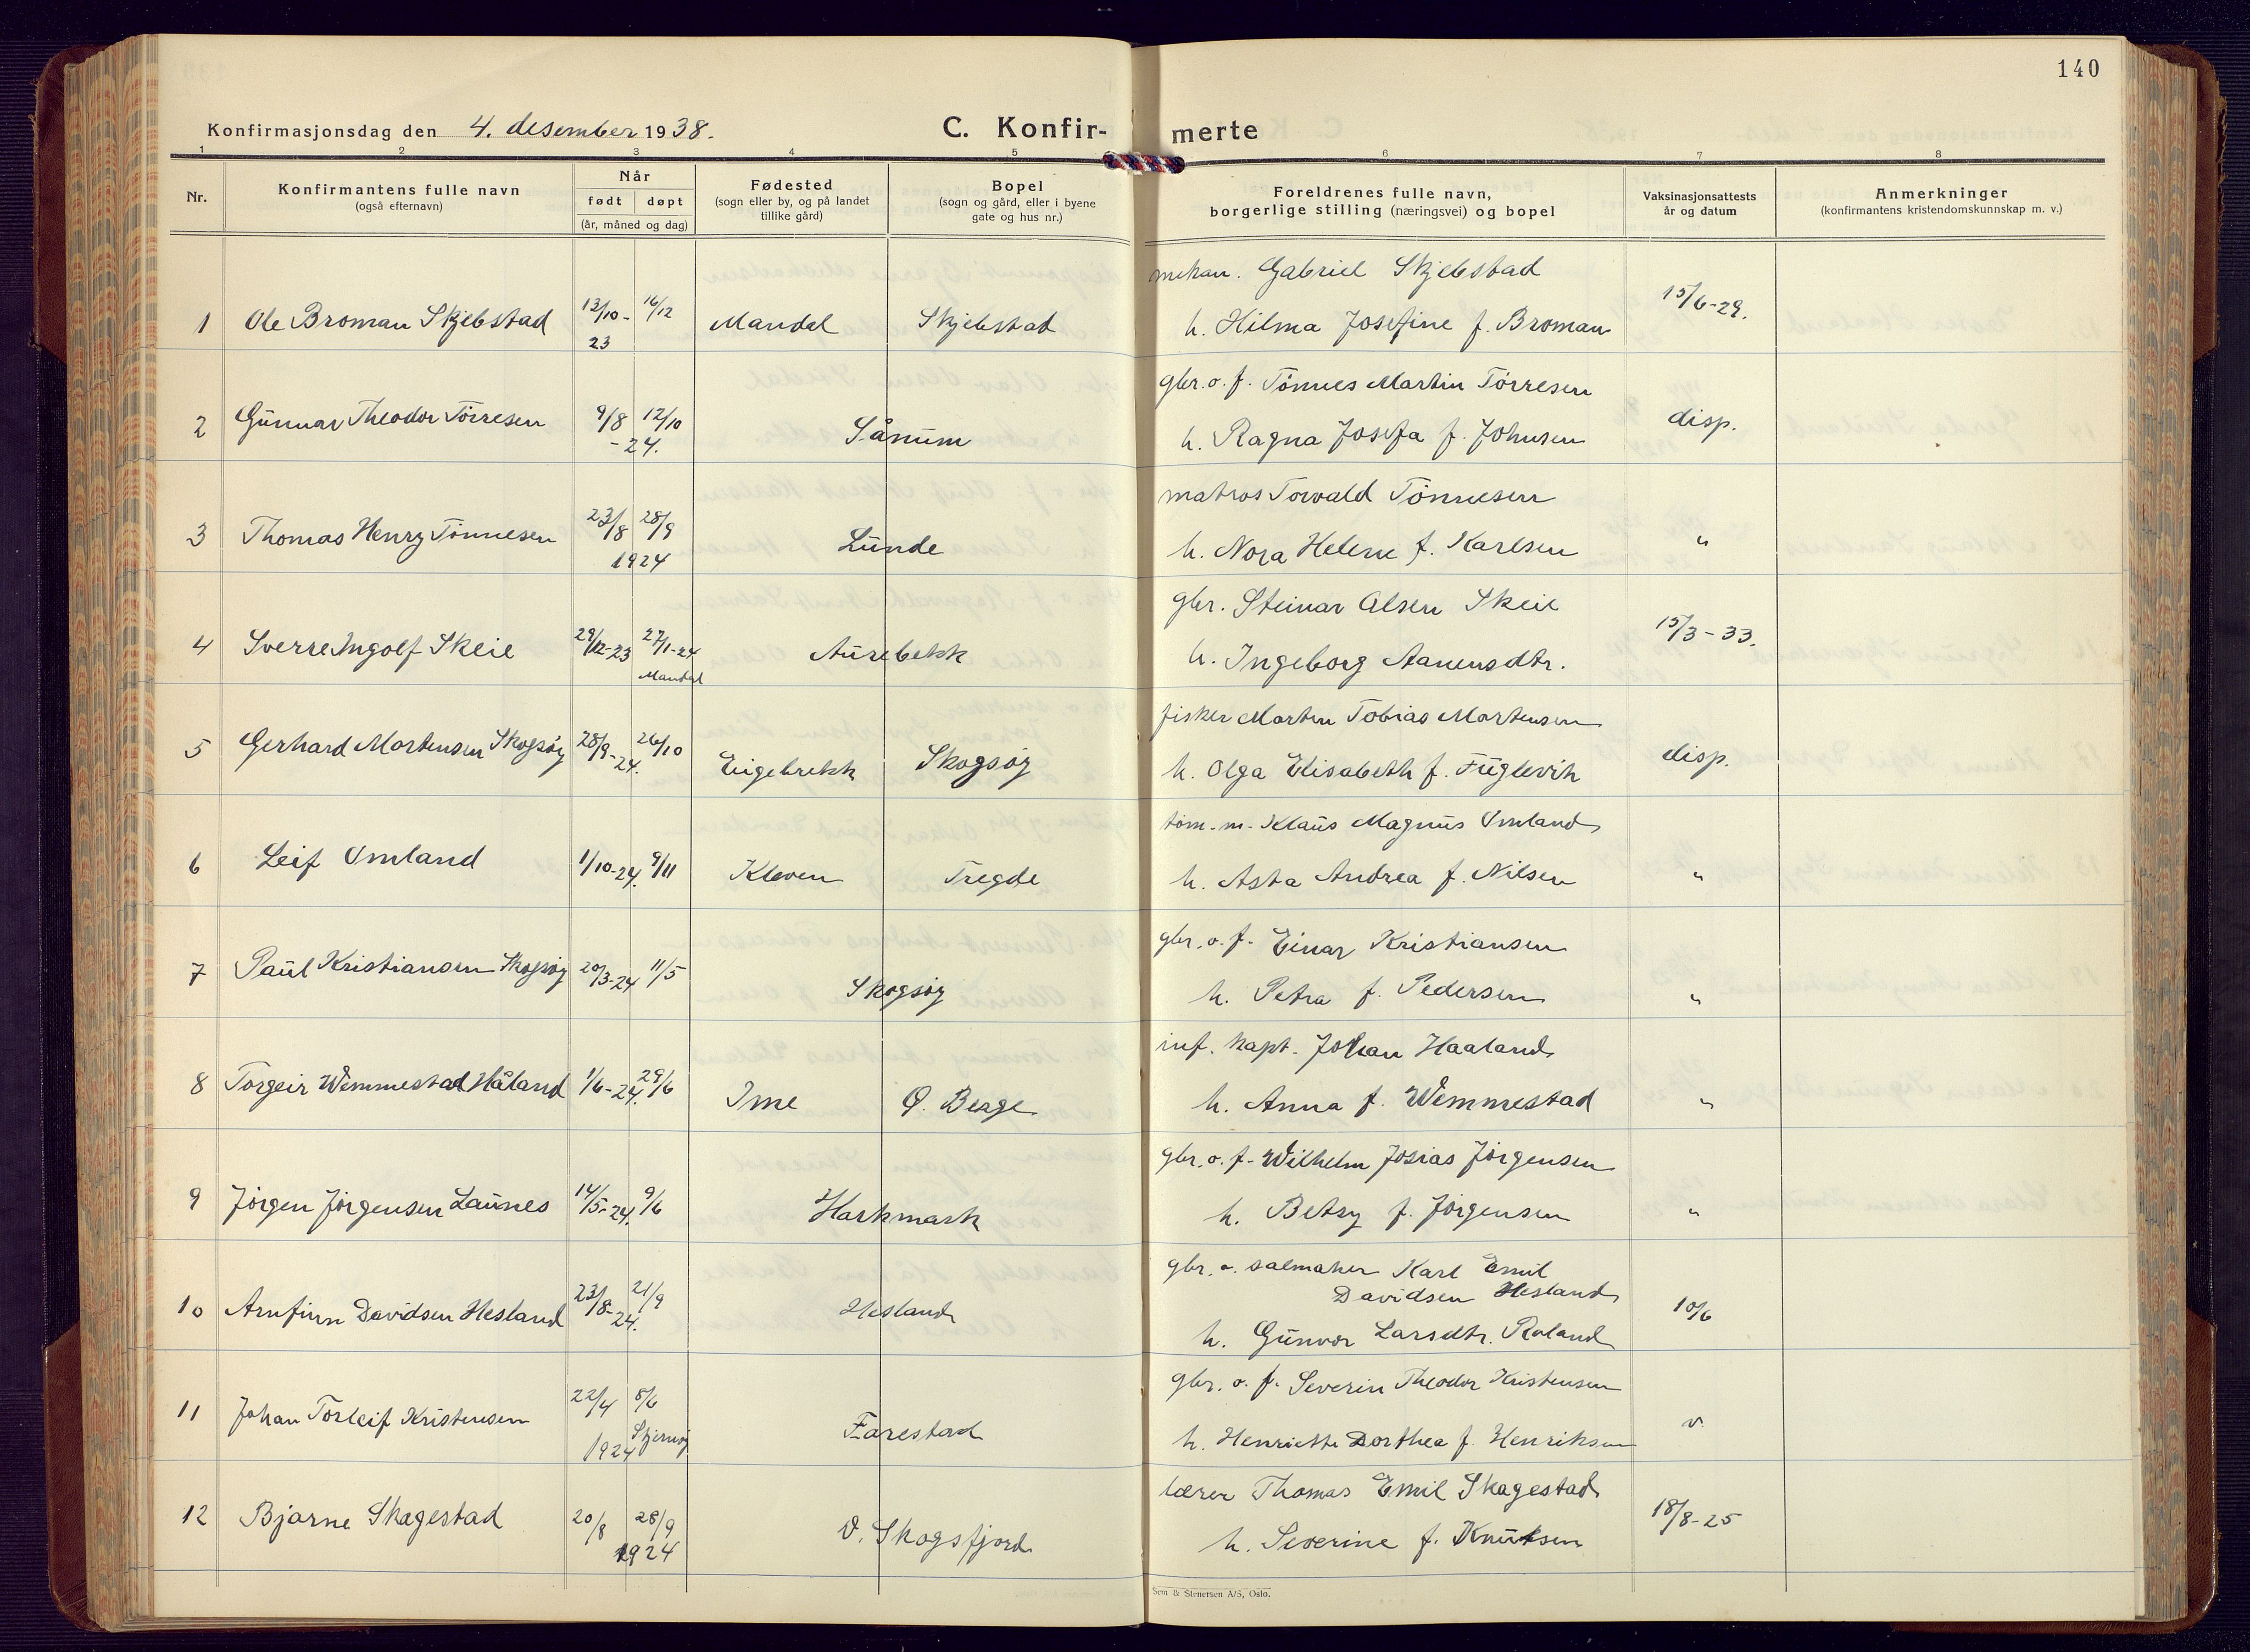 140
Konfirmasjonsdag den 4. desember 1938.
C. Konfir-
merte
1 2 3 4 5 6 7 8
Nr.
Konfirmantens fulle navn
(også efternavn)
Når
født døpt
(år, måned og dag)
Fødested
(sogn eller by, og på landet
tillike gård)
Bopel
(sogn og gård, eller i byene
gate og hus nr.)
Foreldrenes fulle navn,
borgerlige stilling (næringsvei) og bopel
Vaksinasjonsattests
år og datum
Anmerkninger
(konfirmantens kristendomskunnskap m. v.)
mekan. Gabriel Skjebstad
1 Ole Broman Skjebstad 13/10- 23 16/12 Mandal Skjebstad
h. Hilma Josefine f. Broman 15/6-29.
gbr. o. f. Tönnes Martin Törresen
2 Gunnar Theodor Törresen 9/8 12/10 -24. Sånum
h. Ragna Josefa f. Johnsen disp.
matros Torvald Tönnesen
3 Thomas Henry Tönnesen 23/8 28/9 1924 Lunde
h. Nora Helene f. Karlsen "
gbr. Steinar Olsen Skeie
4 Sverre Ingolf Skeie 29/12-23 27/1-24 Mandal Aurebekk
h. Ingeborg Aanensdtr. 15/3-33.
fisker Martin Tobias Mortensen
5 Gerhard Mortensen Skogsöy 28/9-24. 26/10 Eigebrekk Skogsöy
h. Olga Elisabeth f. Fuglevik disp.
töm. m. Klaus Magnus Omland
6 Leif Omland 1/10-24. 9/11 Kleven Tregde
h. Asta Andrea f. Nilsen "
gbr. o. f. Einar Kristiansen
7 Paul Kristiansen Skogsöy 20/3-24 11/5 Skogsöy
h. Petra f. Pedersen "
inf. kapt. Johan Haaland
8 Torgeir Wemmestad Håland 1/6-24. 29/6 Ime Ö. Berge
h. Anna f. Wemmestad "
gbr. o. f. Wilhelm Josias Jörgensen
9 Jörgen Jörgensen Launes 14/5-24. 9/6 Harkmark
h. Betsy f. Jörgensen "
gbr. o. salmaker Karl Emil
Davidsen Hesland
10 Arnfinn Davidsen Hesland 23/8-24. 21/9 Hesland 10/6
h. Gunvor Larsdtr. Roland
gbr. o. f. Severin Theodor Kristensen
11 Johan Torleif Kristensen 22/4 8/6 1924 Skjernöy Farestad v.
h. Henriette Dorthea f. Henriksen
lærer Thomas Emil Skagestad
12 Bjarne Skagestad 20/8 28/9 1924 V. Skogsfjord 18/8-25
h. Severine f. Knutsen
Sem & Stenersen A/S, Oslo.